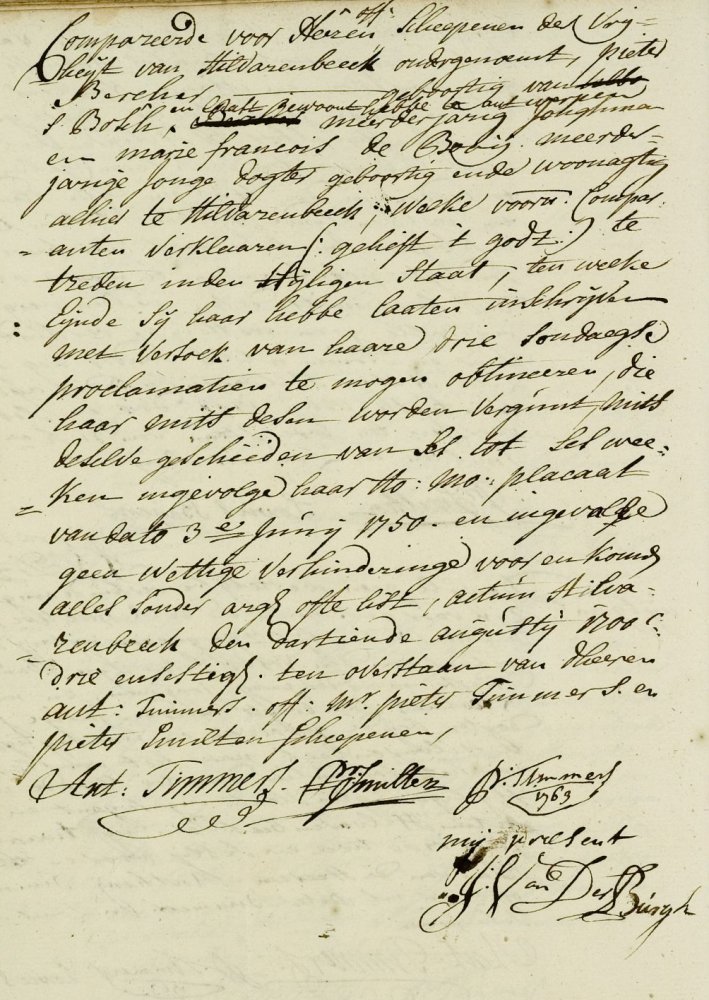 Compareerde voor Heeren off: Scheepenen der Vrij-
heijt van Hilvarenbeeck ondergenoemt, pieter
Bercher geboortig van
s Bosch, en laast gewoont hebbe te antwerpen meerderjarig Jonghman
en marie francois de Bovij meerder-
jarige jonge dogter geboortig ende woonagtig
alhier te Hilvarenbeeck, welke voorn: Compar-
= anten verklaaren (: gelieft 't godt :) te
treden inden Hijligen Staat, ten welke
: Eijnde Sij haar hebbe laaten inschrijven
met versoek van haare drie sondaegse
proclamatien te mogen obtineeren, die
haar mits desen worden vergunt, mits
deselve geschieden van ses tot ses wee-
= ken ingevolge haar Ho: Mo: placaat
van dato 3e Junij 1750. en ingevalle
geen wettige verhinderinge voor en komd
alles sonder argl ofte list, actum Hilva-
= renbeeck den dartiende augustij 1700 c
drie en sestigh. ten overstaan van dheeren
ant: Timmers. off: Mr. pieter Timmers. en
pieter Smitten Scheepenen,
Ant: Timmers. Pr. Smitten P: Timmers
1763
mij present
J: Van Der Burgh